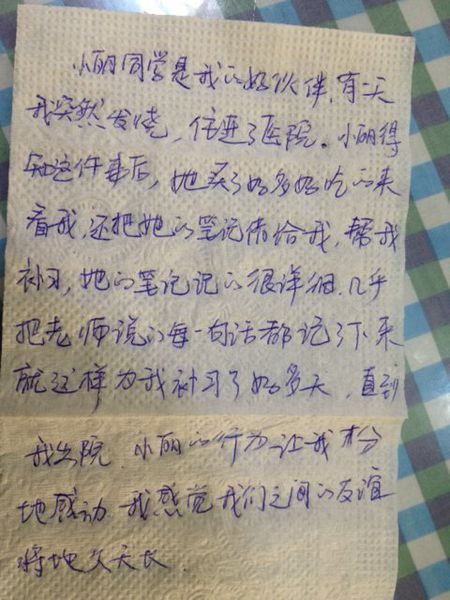 小丽同学是我的好伙伴，有一天
我突然发烧，住进了医院。小丽得
知这件事后，她买了好多好吃的来
看我，还把她的笔记借给我，帮我
补习，她的笔记记的很详细，几乎
把老师说的每一句话都记了下来
就这样为我补习了好多天，直到
我出院，小丽的行为让我十分
地感动 我感觉我们之间的友谊
将地久天长.